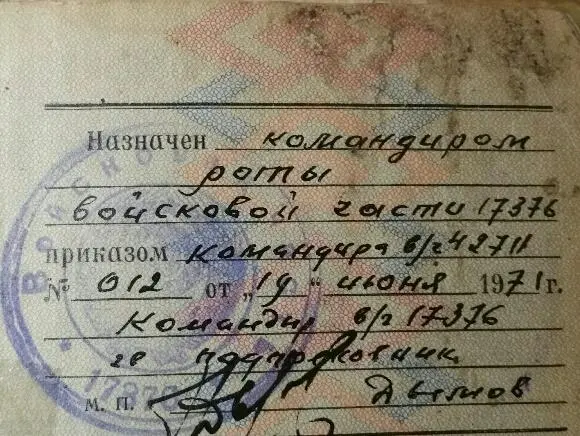 Назначен командиром
роты
войсковой части 17376
приказом командира в/ч 42711
№ 012 от „19“ июня 1971 г.
Командир в/ч 17376
гв подполковник
м. п. Дымов